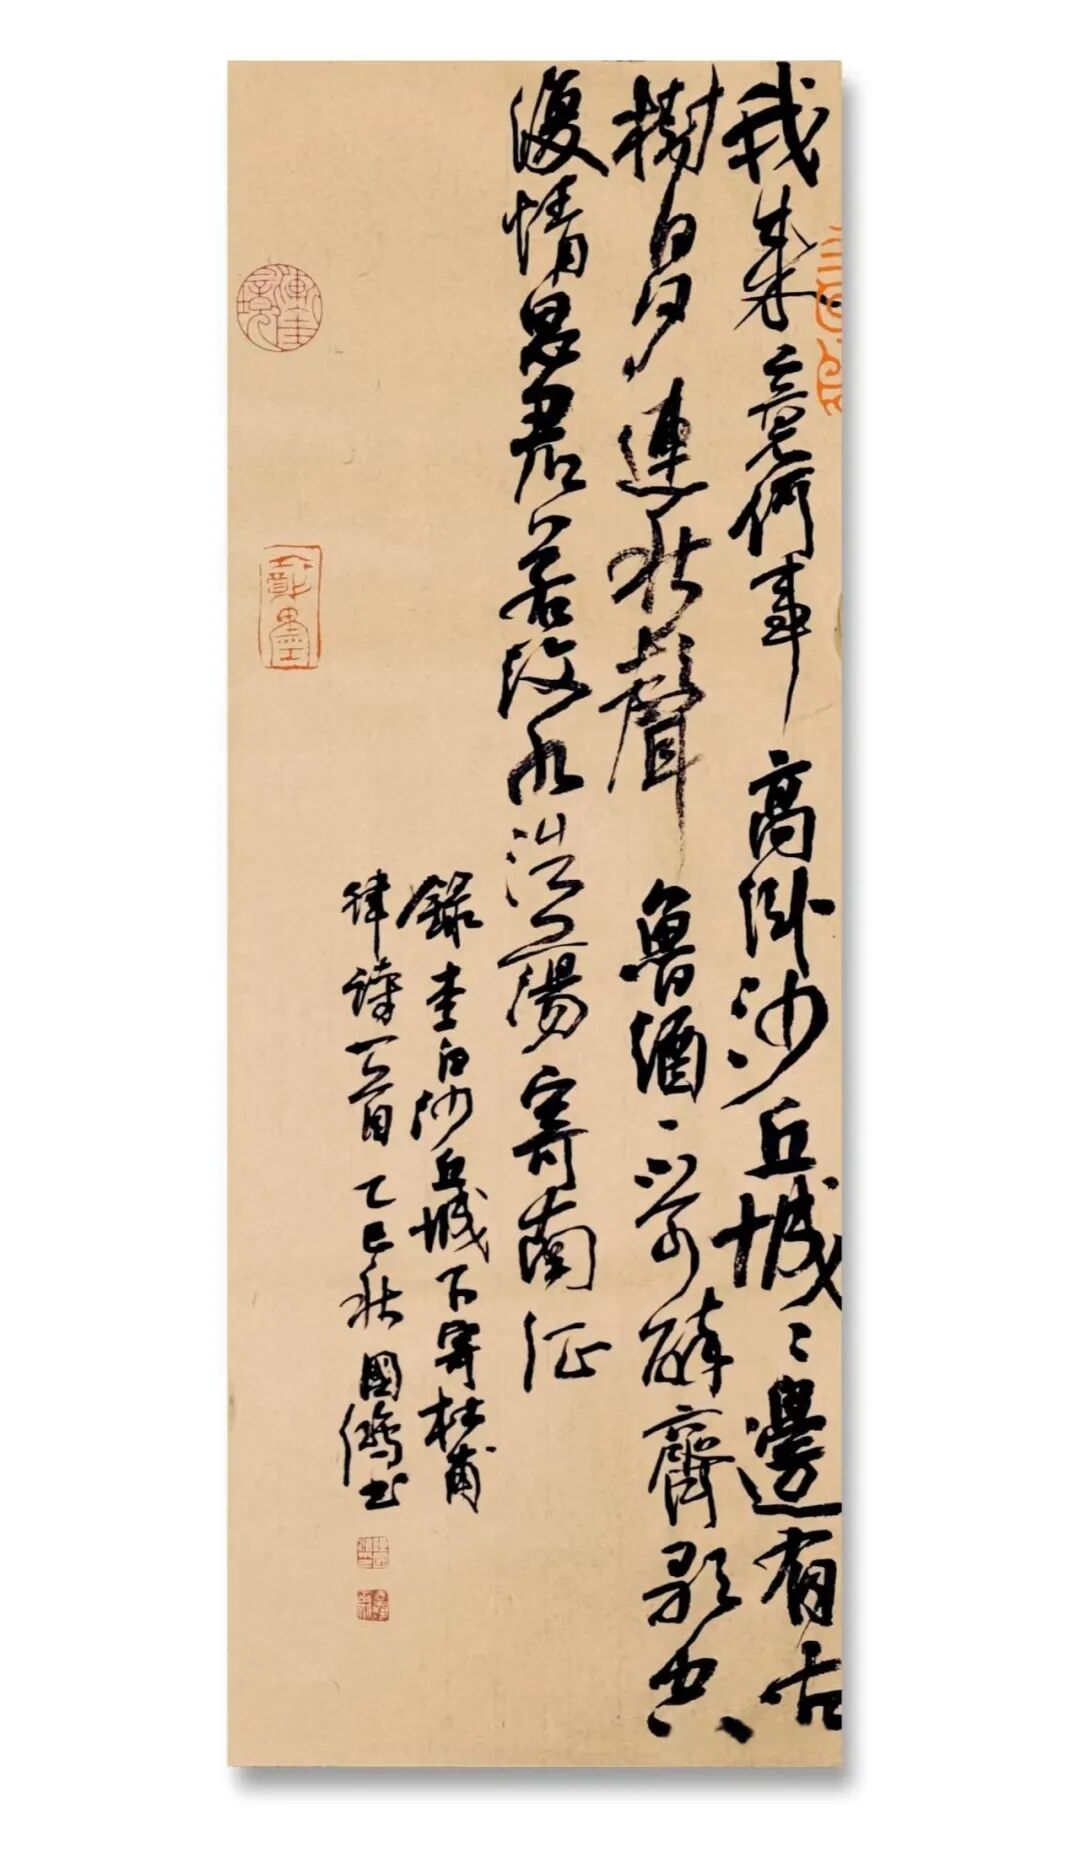 我來竟何事高卧沙丘城〻邊有古
樹日夕連秋聲魯酒不可醉齊歌空
復情思君若汶水浩蕩寄南征
錄李白沙丘城下寄杜甫
律詩一首乙巳秋國鴻书
戲墨